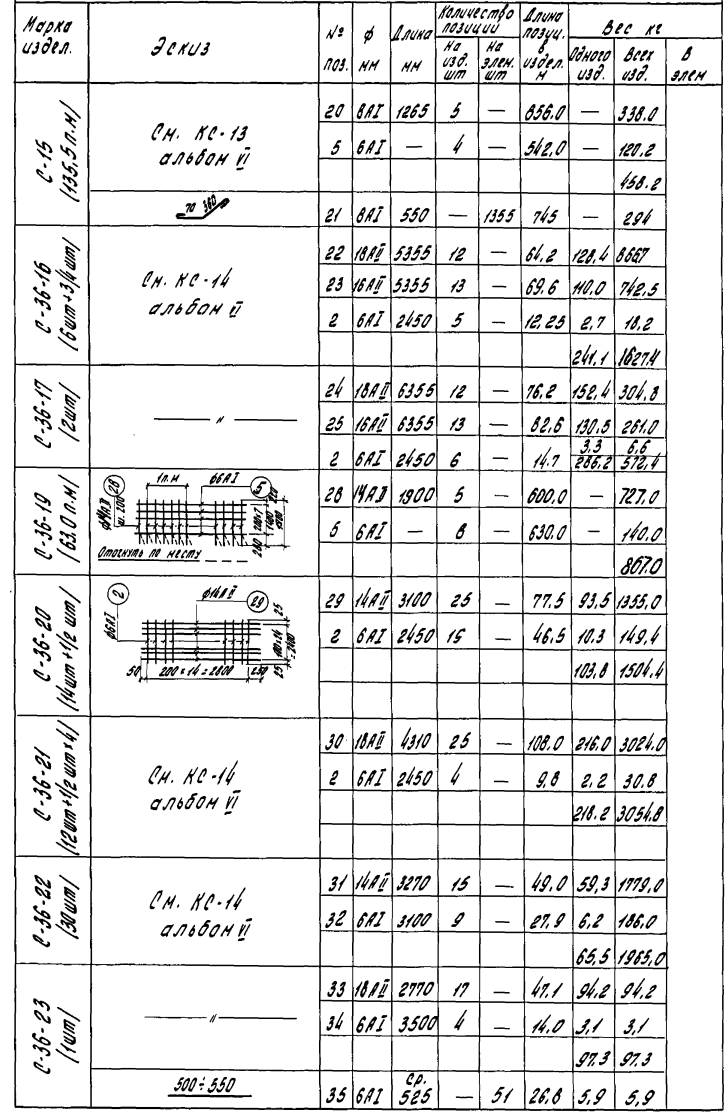 Марка издел. Эскиз № поз. ф мм Длина мм Количество позиций На изд. шт На элем. шт Длина позиц. в издел. м Вес кг Одного изд. Всех изд. В элем
С-15 /135,5 п.м/ См. КС-13 альбом VI
20 8АI 1265 5 — 856.0 — 338.0
5 6АI — 4 — 542,0 — 120.2
458.2
70 360
21 8АI 550 — 1355 745 — 294
С-36-16 /6шт+3/4шт/ См. КС-14 альбом VI
22 18АII 5355 12 — 64,2 128,4 8667
23 16АII 5355 13 — 69.6 110,0 742,5
2 6АI 2450 5 — 12,25 2,7 18,2
241,1 1627,4
С-36-17 /2шт/ — " —
24 18АII 6355 12 — 76.2 152,4 304,8
25 16АII 6355 13 — 82,6 130,5 261.0
2 6АI 2450 6 — 14.7 3,3 6,6
286,2 572,4
С-36-19 /63.0 п.м/
28 1п.м ф6АI 5
ш. 200
Отогнуть по месту
28 14АII 1900 5 — 600.0 — 727.0
5 6АI — 8 — 630.0 — 140.0
867.0
С-36-20 /14шт+1/2 шт/
2 ф14АII 29
ф6АI
50 200×14=2800 250
25
25
29 14АII 3100 25 — 77.5 93,5 1355,0
2 6АI 2450 15 — 46,5 10.3 149,4
103,8 1504,4
С-36-21 /12шт+1/2 шт×4/ См. КС-14 альбом VI
30 18АII 4310 25 — 108.0 216.0 3024.0
2 6АI 2450 4 — 9,8 2,2 30.8
218.2 3054,8
С-36-22 /30шт/ См. КС-14 альбом VI
31 14АII 3270 15 — 49.0 59,3 1779,0
32 6АI 3100 9 — 27,9 6,2 186.0
65,5 1965,0
С-36-23 /1шт/ — " —
33 18АII 2770 17 — 47.1 94,2 94,2
34 6АI 3500 4 — 14,0 3,1 3,1
97.3 97.3
500÷550
35 6АI Ср. 525 — 51 26,8 5,9 5,9